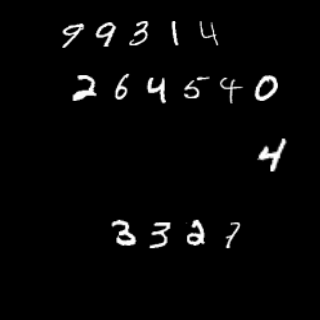 99314
264540
4
3327